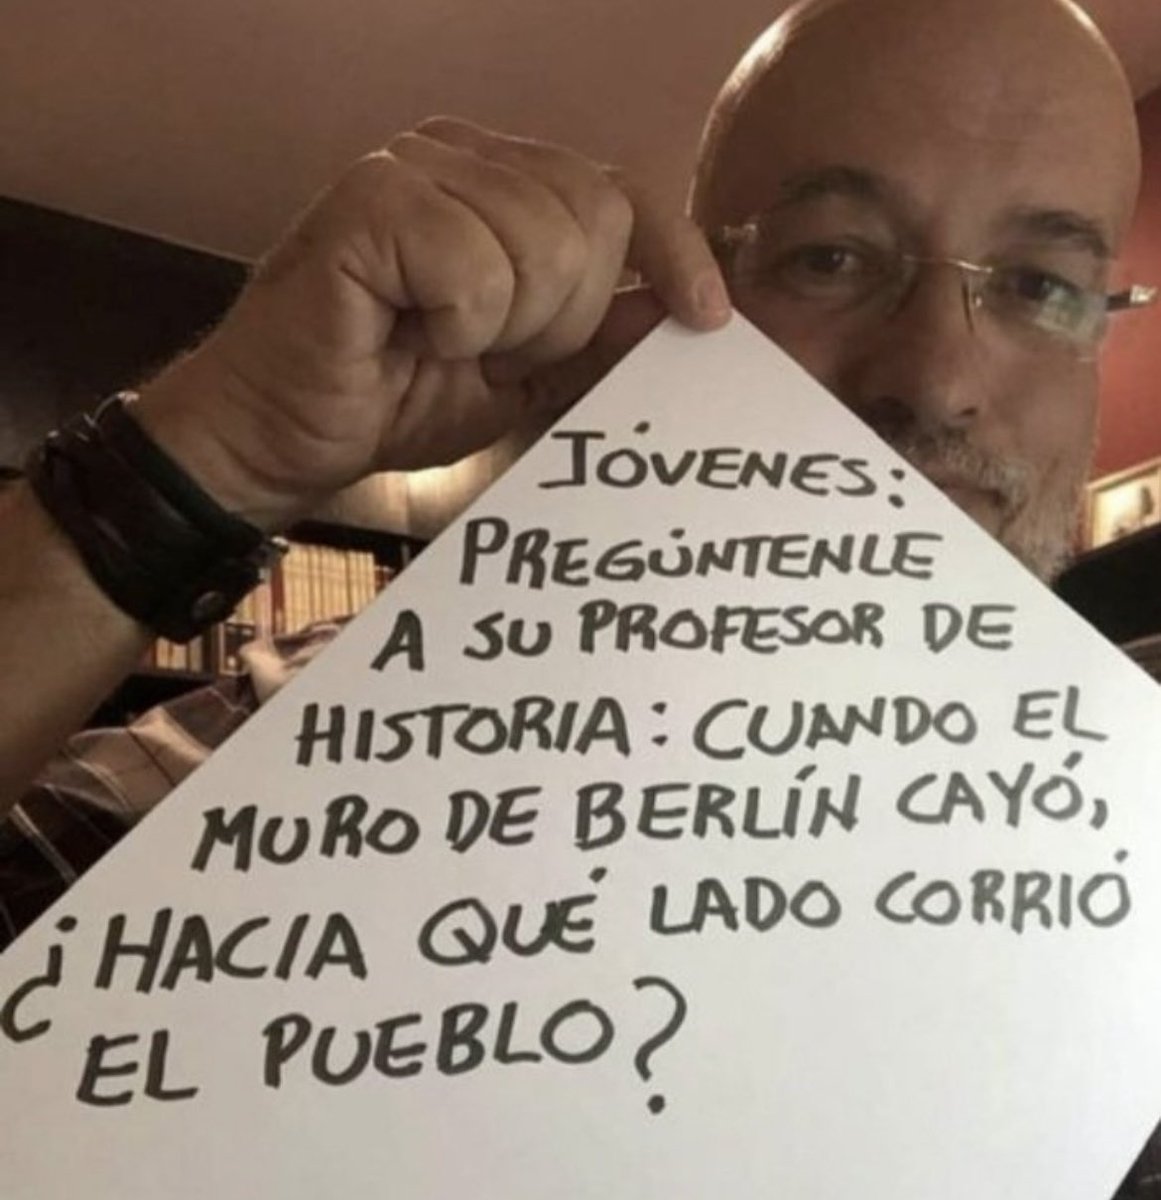 JÓVENES:
PREGÚNTENLE
A SU PROFESOR DE
HISTORIA: CUANDO EL
MURO DE BERLÍN CAYÓ,
¿HACIA QUÉ LADO CORRIÓ
EL PUEBLO?